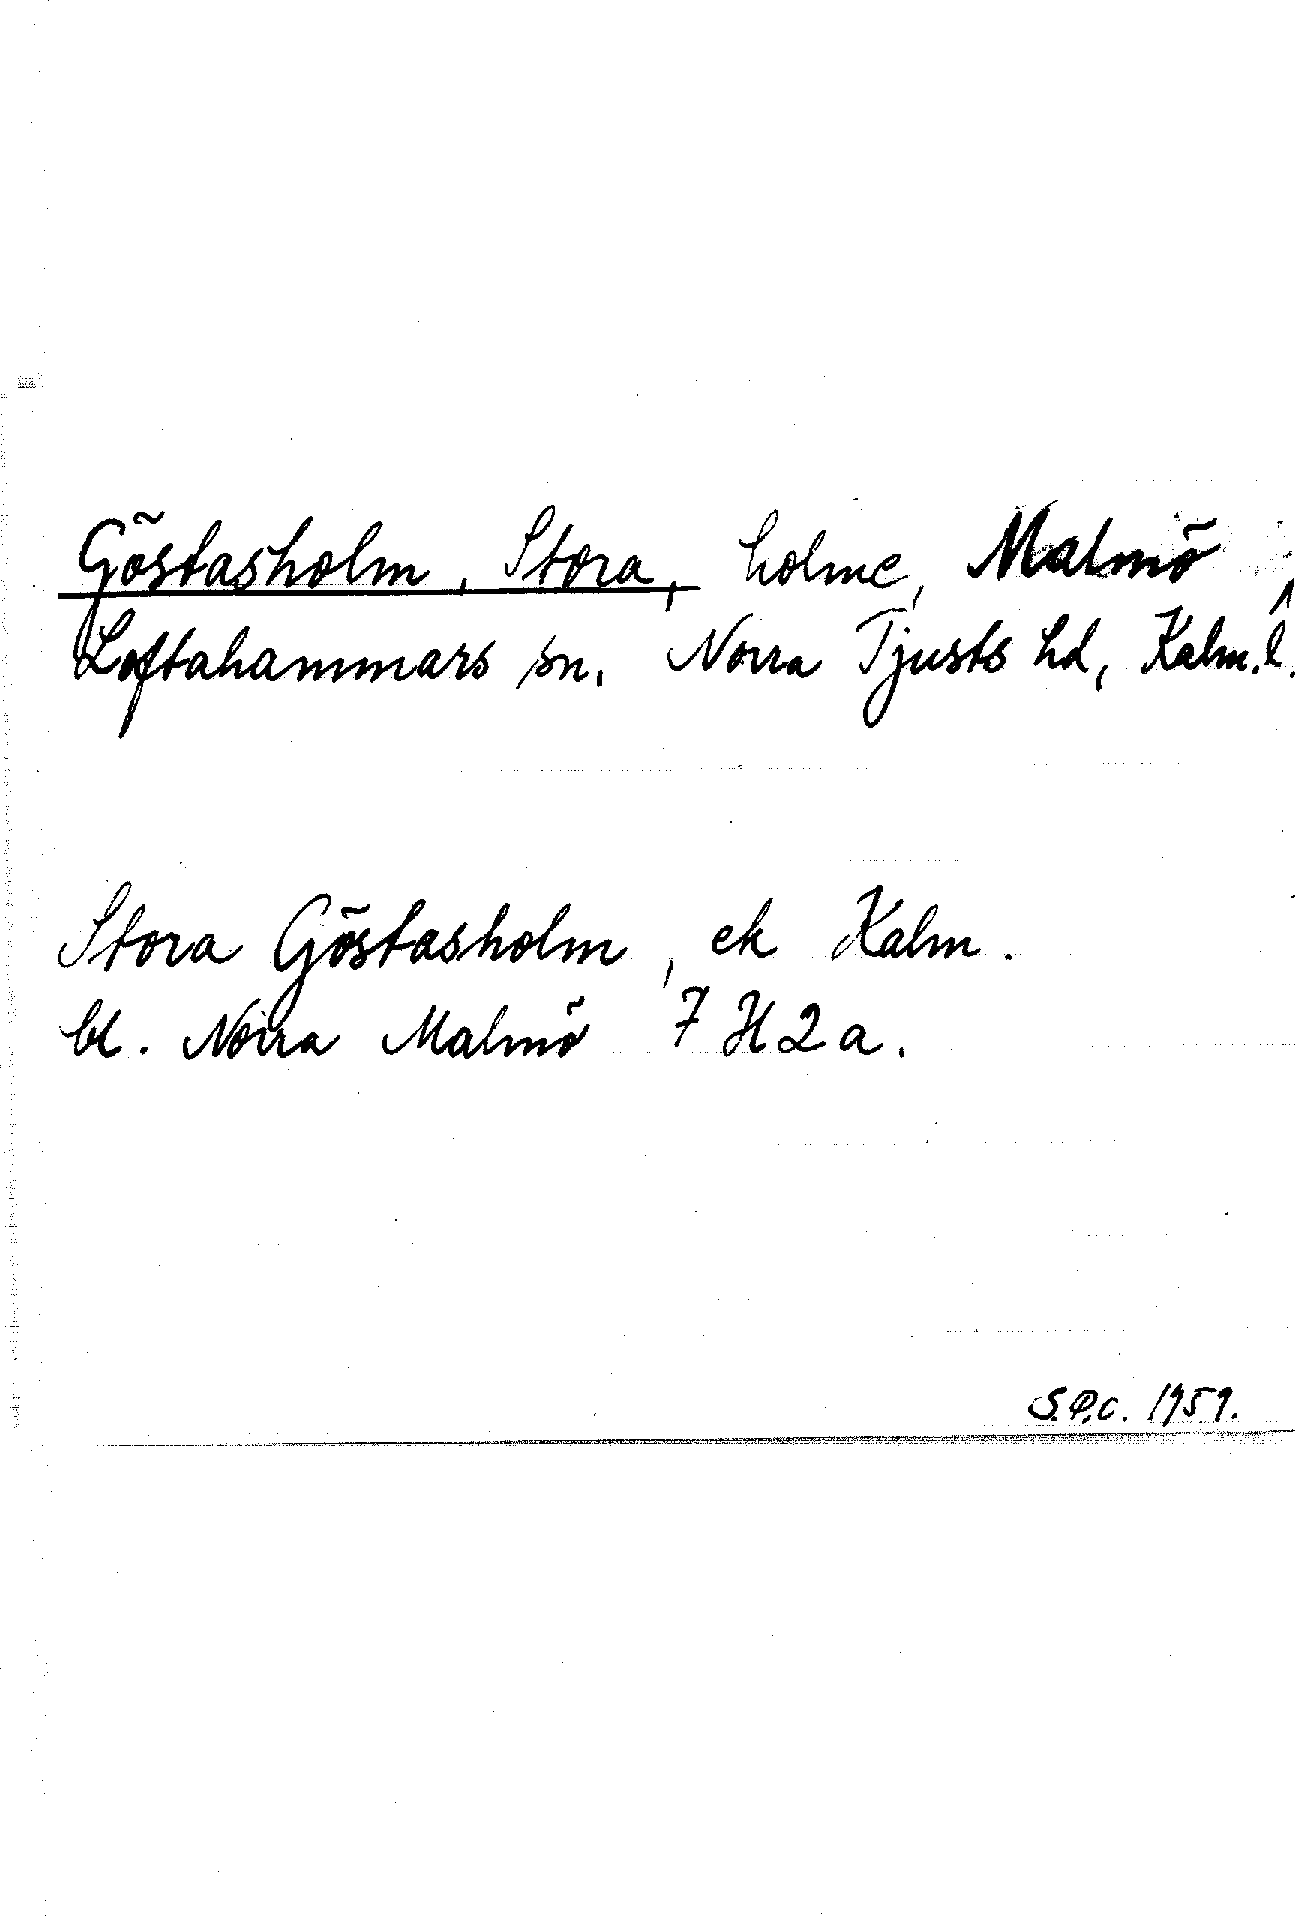 Göstasholm, Stora, holme, Malmö,
Loftahammars sn, Norra Tjusts hd, Kalm. l.
Stora Göstasholm, ek Kalm.
bl. Norra Malmö 7 H 2 a.
S.P.C. 1959.